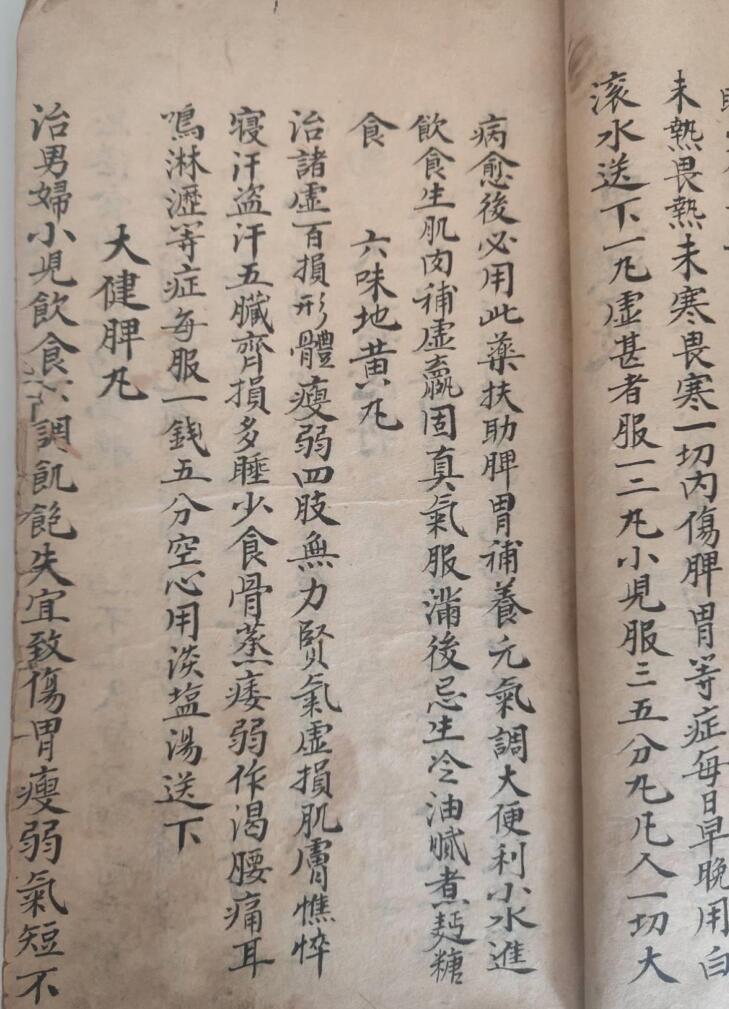 未熱畏熱未寒畏寒一切內傷脾胃等症每日早晚用白
滚水送下一丸虛甚者服一二丸小児服三五分丸凡人一切大
病愈後必用此藥扶助脾胃補養元氣調大便利小水進
飲食生肌肉補虛羸固真氣服滿後忌生冷油膩煮麺糖
食
六味地黃丸
治諸虛百損形體瘦弱四肢無力賢氣虛損肌膚憔悴
寝汗盗汗五臟齊損多睡少食骨蒸痿弱作渴腰痛耳
鳴淋瀝等症每服一錢五分空心用淡塩湯送下
大健脾丸
治男婦小児飲食調飢飽失宜致傷胃瘦弱氣短不